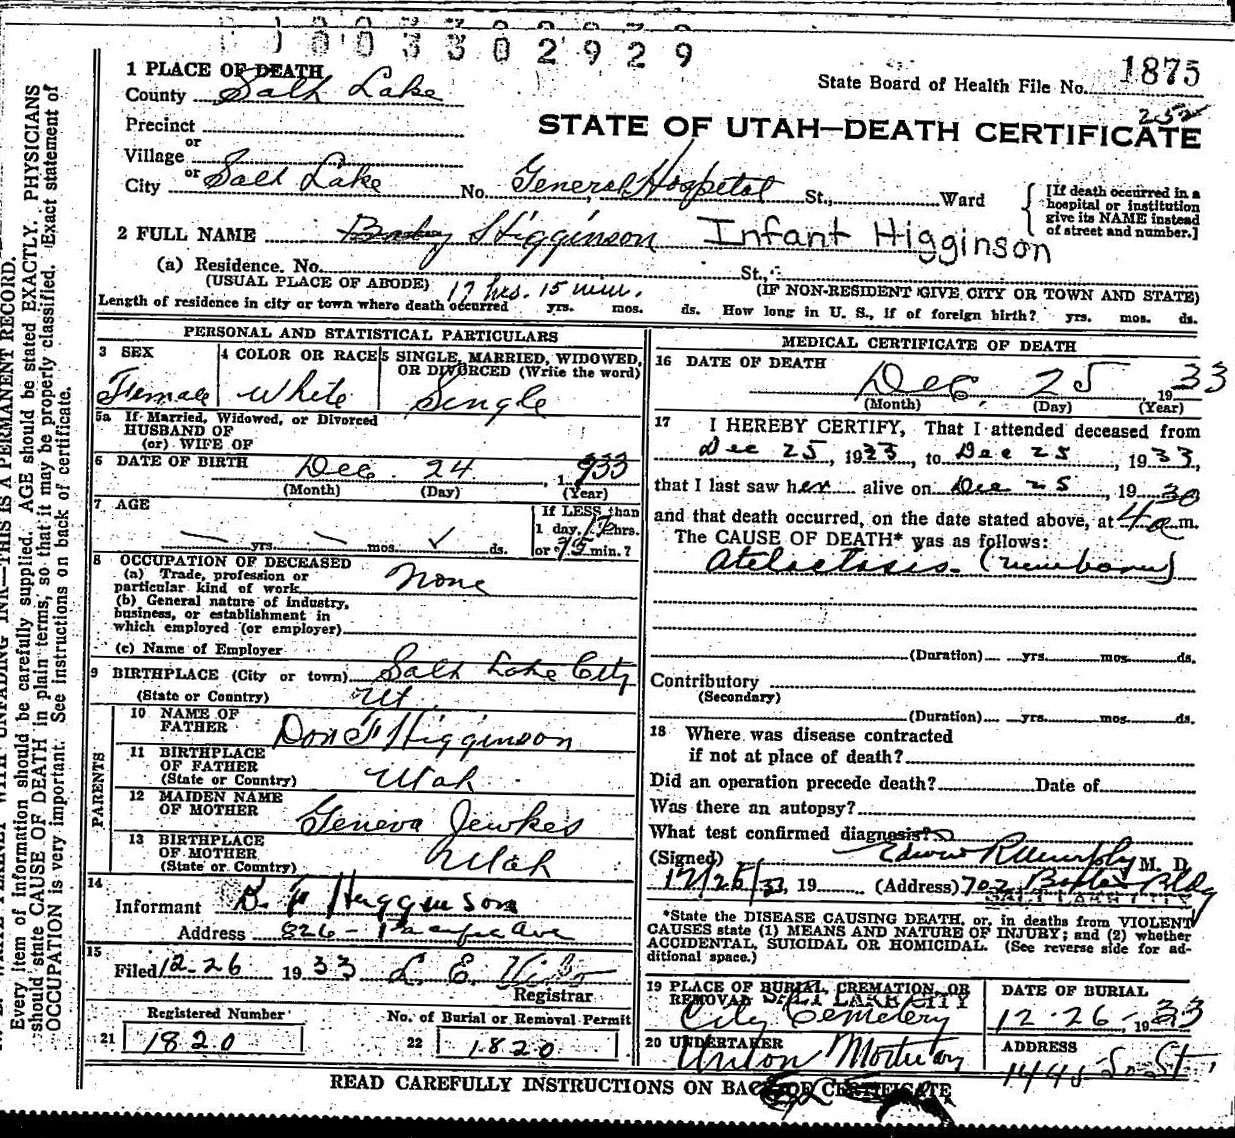 1 0 0 3 3 0 2 9 2 9
1 PLACE OF DEATH
County Salt Lake
State Board of Health File No. 1875
252
Precinct
or
Village
or
City Salt Lake No. General Hospetal St., Ward
STATE OF UTAH—DEATH CERTIFICATE
[If death occurred in a
hospital or institution
give its NAME instead
of street and number.]
2 FULL NAME Baby Higginson Infant Higginson
(a) Residence. No. St.,
(USUAL PLACE OF ABODE) 17 hrs. 15 min. (IF NON-RESIDENT GIVE CITY OR TOWN AND STATE)
Length of residence in city or town where death occurred yrs. mos. ds. How long in U. S., if of foreign birth? yrs. mos. ds.
PERSONAL AND STATISTICAL PARTICULARS
3 SEX 4 COLOR OR RACE 5 SINGLE, MARRIED, WIDOWED,
OR DIVORCED (Write the word)
Female White Single
5a If Married, Widowed, or Divorced
HUSBAND OF
(or) WIFE OF
6 DATE OF BIRTH Dec. 24, 1933
(Month) (Day) (Year)
7 AGE
If LESS than
1 day, 17 hrs.
— yrs. — mos. ✓ ds. or 15 min.?
8 OCCUPATION OF DECEASED
(a) Trade, profession or
particular kind of work none
(b) General nature of industry,
business, or establishment in
which employed (or employer)
(c) Name of Employer
9 BIRTHPLACE (City or town) Salt Lake City
(State or Country) Ut.
PARENTS
10 NAME OF
FATHER Don F Higginson
11 BIRTHPLACE
OF FATHER
(State or Country) Utah
12 MAIDEN NAME
OF MOTHER Geneva Jewkes
13 BIRTHPLACE
OF MOTHER
(State or Country) Utah
14
Informant D. F Higginson
Address 826 - Ave
15
Filed 12-26 1933 L. E.
Registrar
Registered Number No. of Burial or Removal Permit
21 1820 22 1820
MEDICAL CERTIFICATE OF DEATH
16 DATE OF DEATH
Dec. 25, 1933
(Month) (Day) (Year)
17 I HEREBY CERTIFY, That I attended deceased from
Dec 25, 1933, to Dec 25, 1933,
that I last saw her alive on Dec 25, 1930
and that death occurred, on the date stated above, at 4 a m.
The CAUSE OF DEATH* was as follows:
Atelactasis. (newborn)
(Duration) yrs. mos. ds.
Contributory
(Secondary)
(Duration) yrs. mos. ds.
18 Where was disease contracted
if not at place of death?
Did an operation precede death? Date of
Was there an autopsy?
What test confirmed diagnosis?
(Signed) Edwin R Murphy M. D.
12/25/33, 19 (Address) 702 Bldg
SALT LAKE CITY
*State the DISEASE CAUSING DEATH, or, in deaths from VIOLENT
CAUSES state (1) MEANS AND NATURE OF INJURY; and (2) whether
ACCIDENTAL, SUICIDAL OR HOMICIDAL. (See reverse side for ad-
ditional space.)
19 PLACE OF BURIAL, CREMATION, OR
REMOVAL SALT LAKE CITY
City Cemetery
DATE OF BURIAL
12-26-1933
20 UNDERTAKER
Union Mortuary
ADDRESS
1445 So St.
READ CAREFULLY INSTRUCTIONS ON BACK OF CERTIFICATE
WRITE PLAINLY WITH UNFADING INK—THIS IS A PERMANENT RECORD.
Every item of information should be carefully supplied. AGE should be stated EXACTLY. PHYSICIANS
should state CAUSE OF DEATH in plain terms, so that it may be properly classified. Exact statement of
OCCUPATION is very important. See instructions on back of certificate.